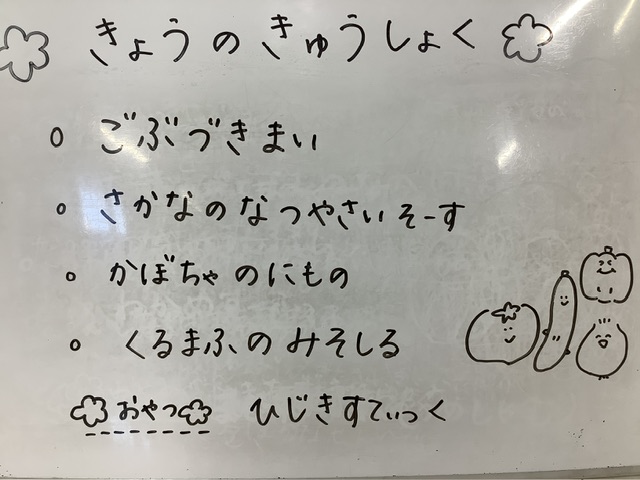 きょうのきゅうしょく
ごぶづきまい
さかなのなつやさいそーす
かぼちゃのにもの
くるまふのみそしる
おやつ ひじきすてぃっく